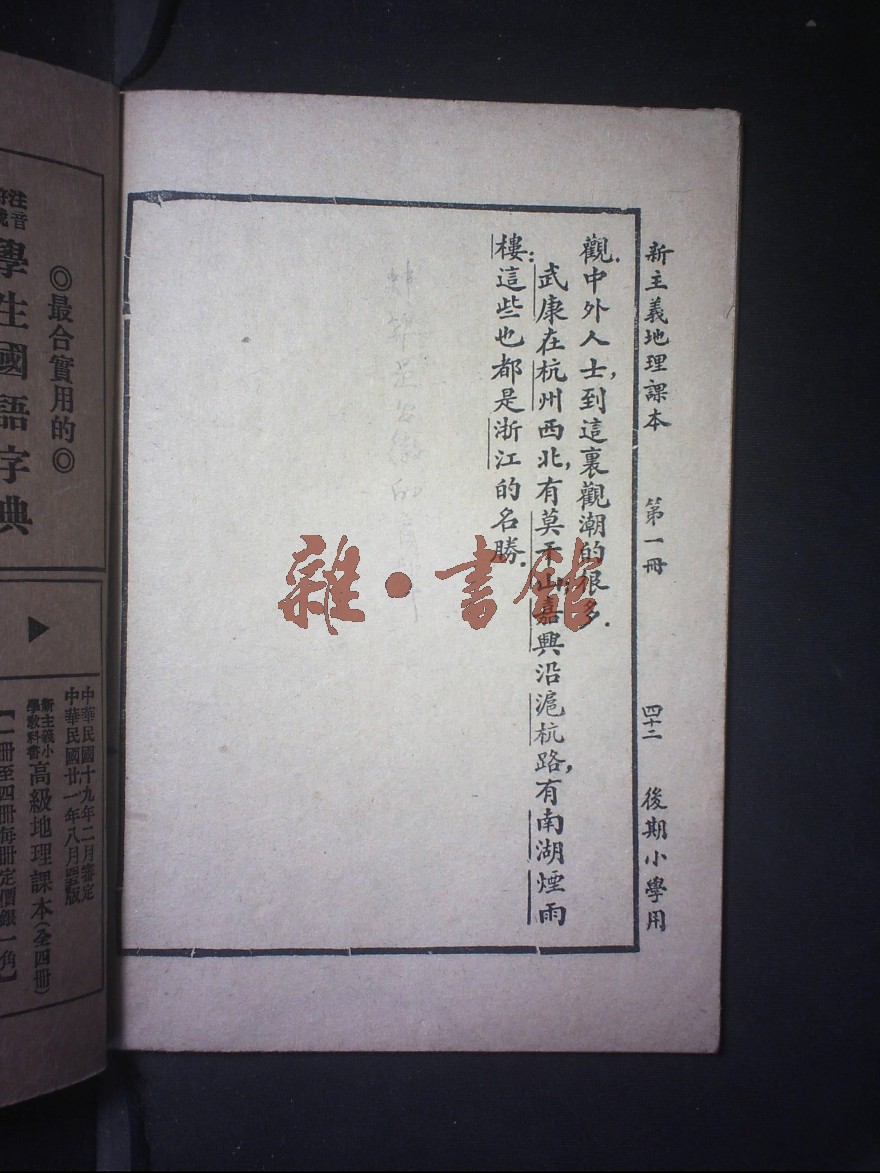 新主義地理課本　第一冊　四十二　後期小學用
觀.中外人士,到這裏觀潮的很多.
武康在杭州西北,有莫干山,嘉興沿滬杭路,有南湖煙雨
樓:這些也都是浙江的名勝.
雜·書館
◎最合實用的◎
學生國語字典
中華民國十九年二月審定
中華民國廿一年八月
新主義小學教科書高級地理課本(全四冊)
【一冊至四冊每冊定價銀一角】